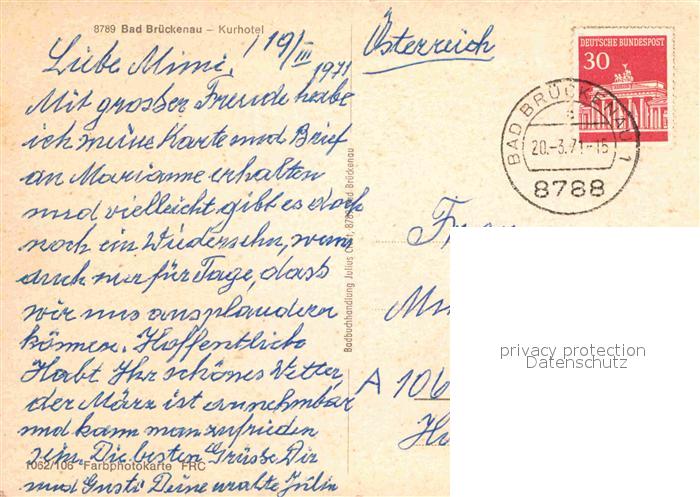 8789 Bad Brückenau – Kurhotel
19/III 1971
Liebe Mimi,
Mit grosser Freude habe
ich meine Karte und Brief
an Marianne erhalten
und vielleicht gibt es doch
noch ein Wiedersehn, wenn
auch nur für Tage, dass
wir uns ausplaudern
können. Hoffentlich
Habt Ihr schönes Wetter,
der März ist annehmbar
und kann man zufrieden
sein. Die besten Grüsse Dir
und Gusti Deine uralte Julin
1062/106 Farbphotokarte FRC
Badbuchhandlung Julius
Bad Brückenau
Österreich
DEUTSCHE BUNDESPOST
30
BAD BRÜCKENAU 1
a
20.-3.71-15
8788
Frau
A 106
privacy protection
Datenschutz